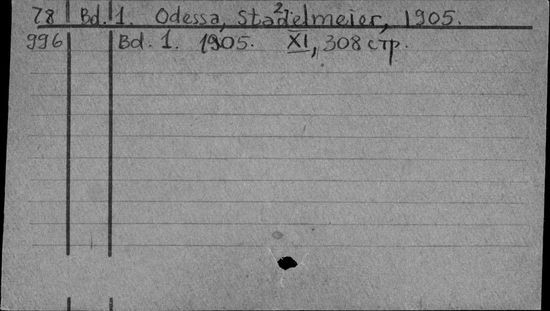 78 Bd. 1. Odessa, Stadelmeier, 1905.
996 Bd. 1. 1905. XI, 308 стр.